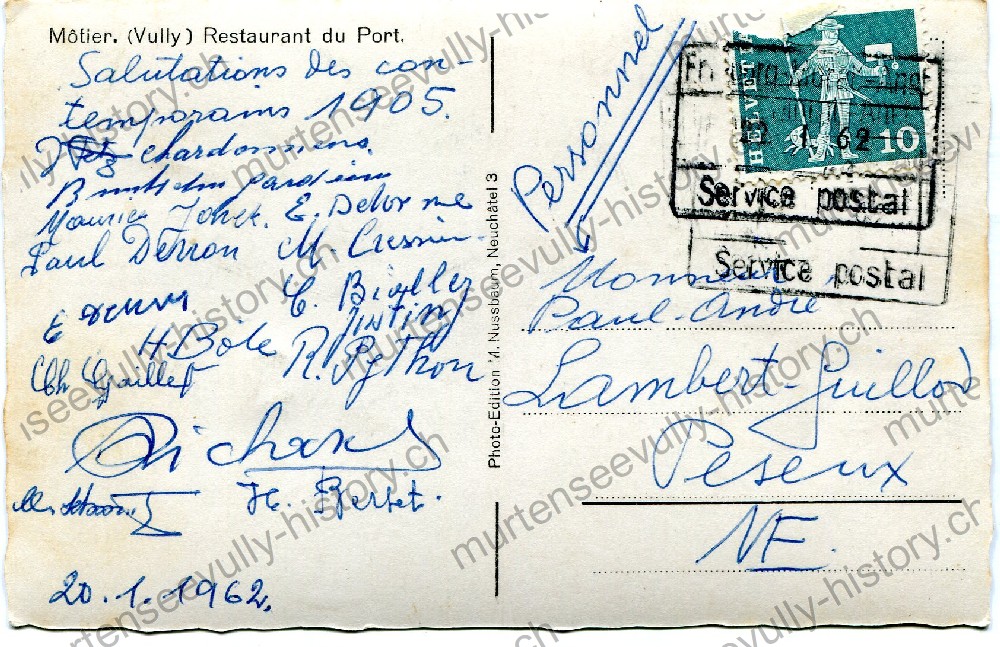 Môtier. (Vully) Restaurant du Port.
Salutations des con-
temporains 1905.
chardonniens.
Maurice E. Delorme
Paul Derron M.
C.
H Bôle R. Python
Ch Gaillet
Richard
H. Berset.
20.1.1962.
Photo-Edition M. Nussbaum, Neuchâtel 3
Personnel
HELVETIA
10
1. 62
Service postal
Service postal
Monsieur
Paul-André
Lambert-Guillod
Peseux
NE.
murtenseevully-history.ch